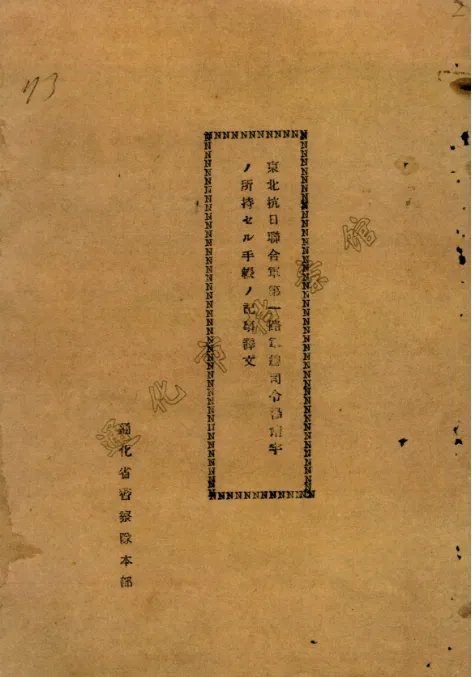 73
2
東北抗日聯合軍第一路軍總司令楊靖宇
ノ所持セル手帳ノ記事譯文
通化省警察隊本部